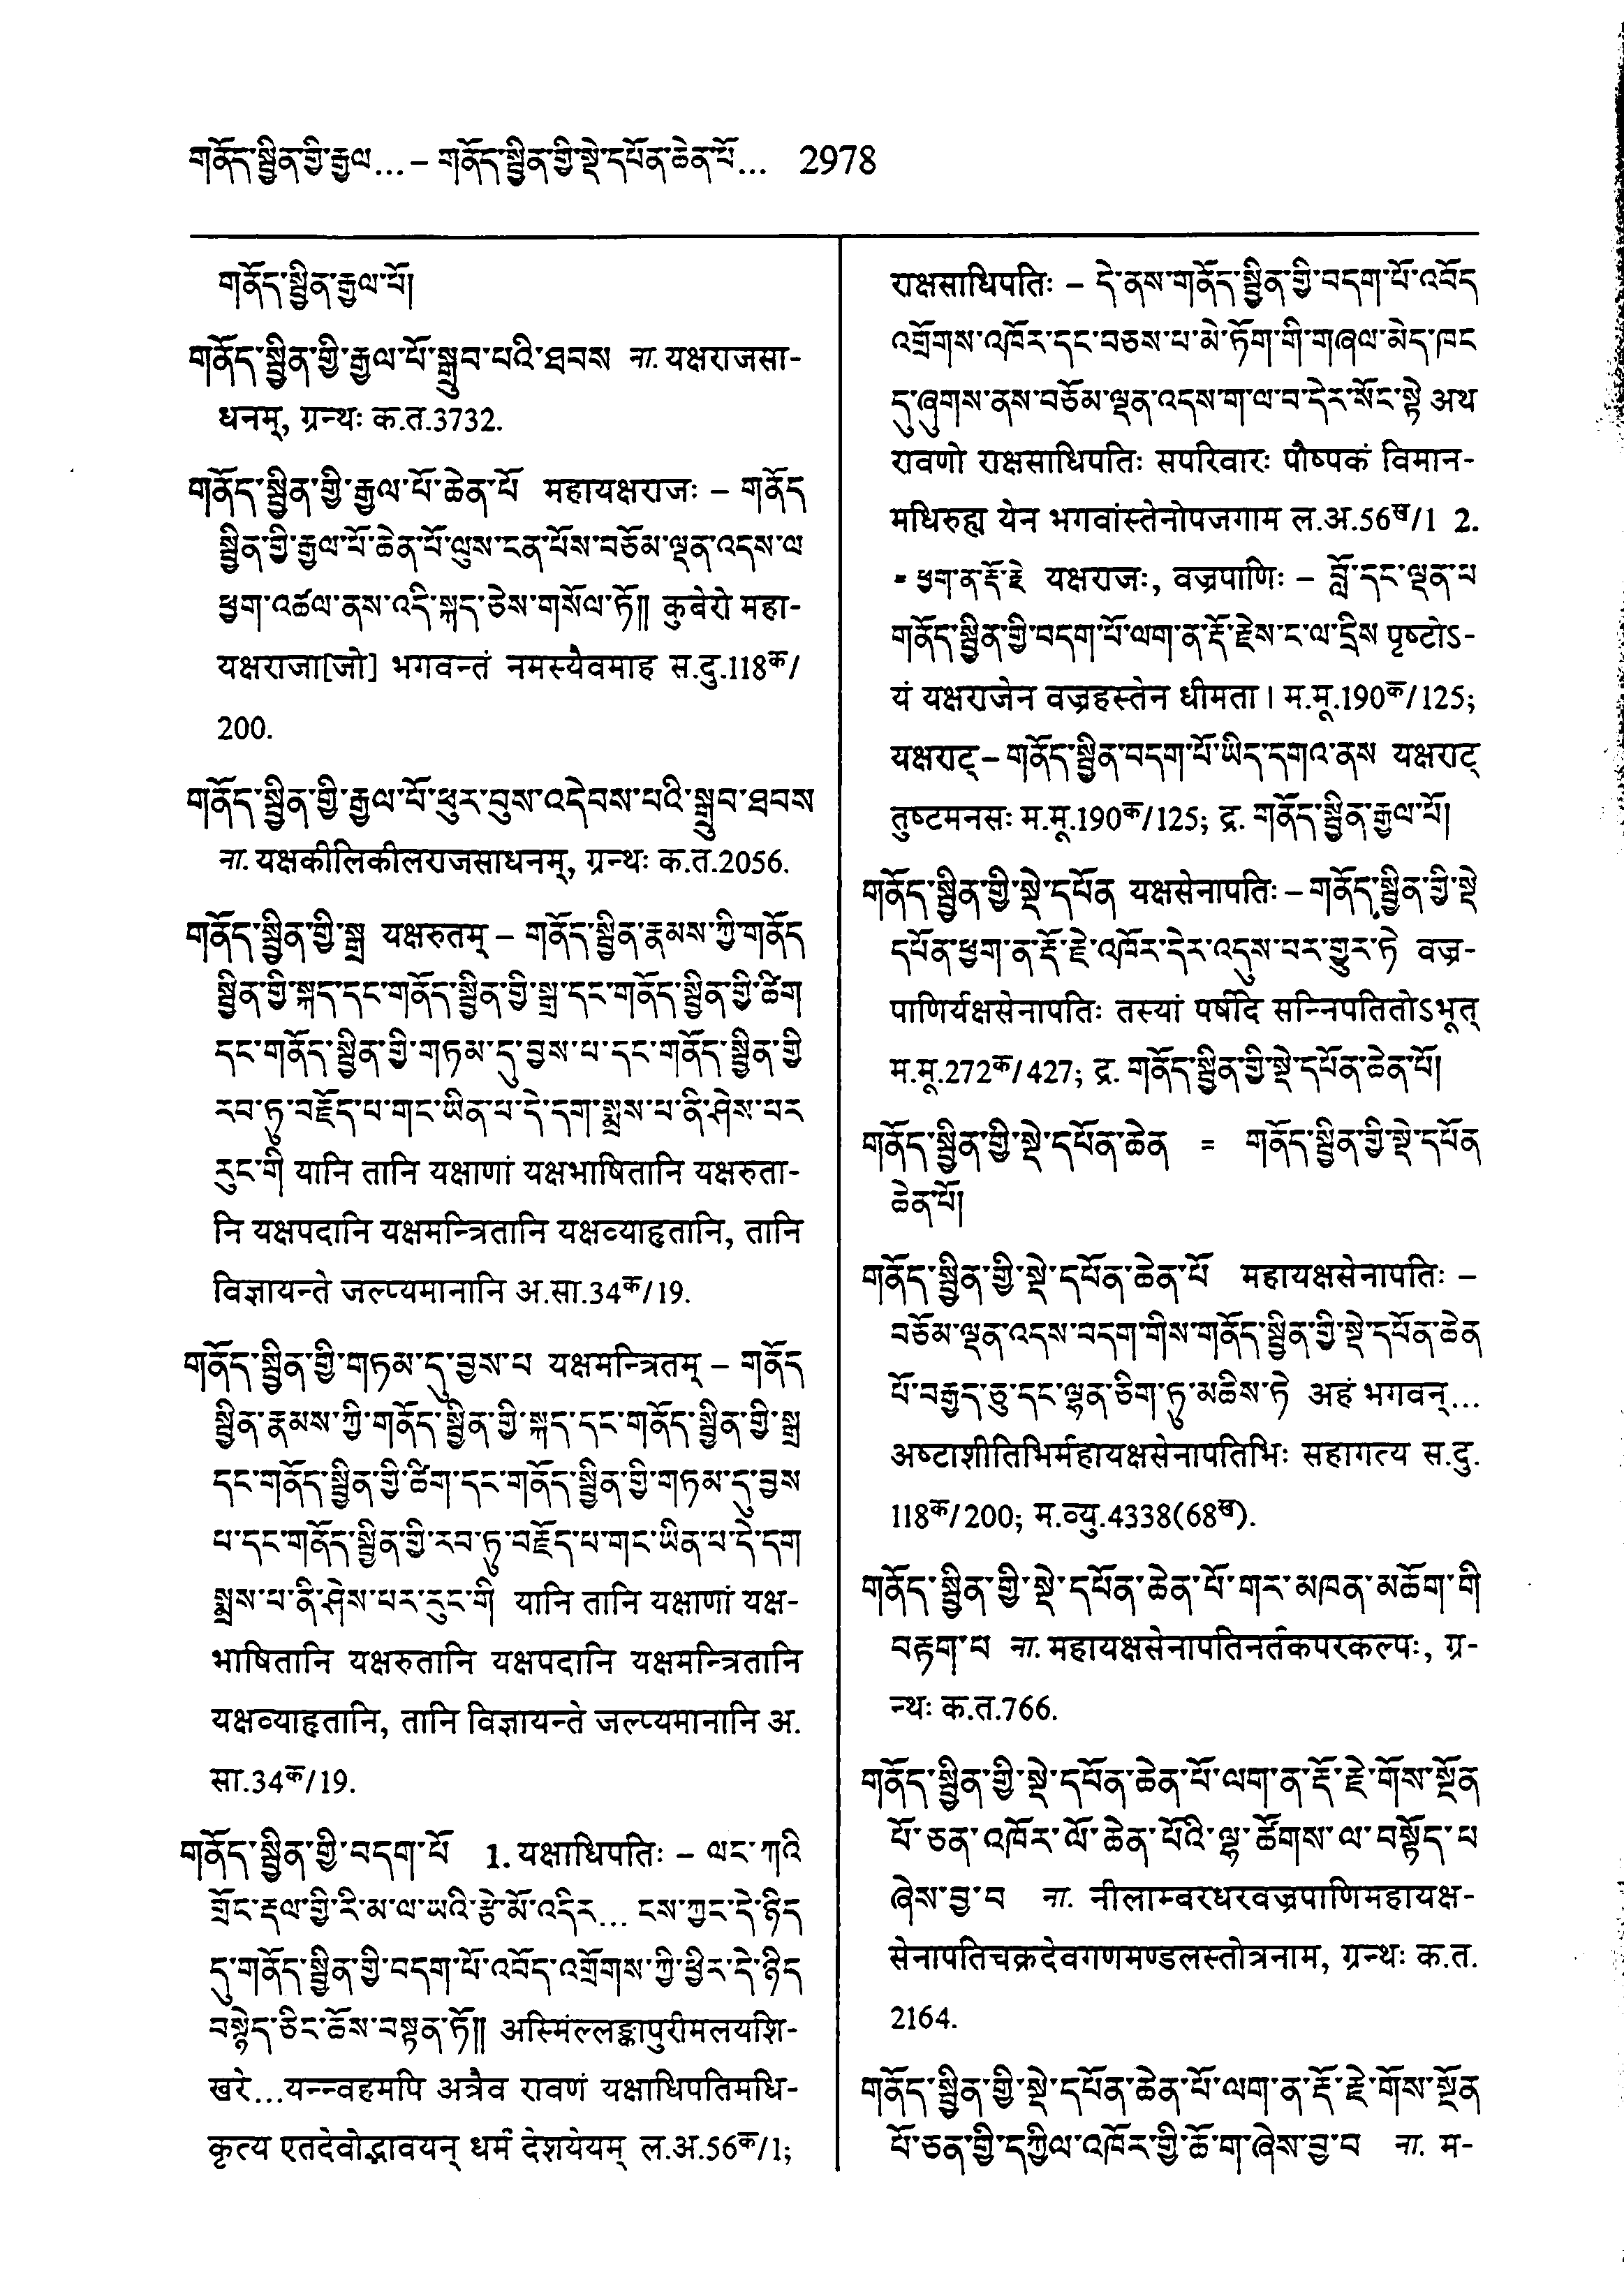 གནོད་སྦྱིན་གྱི་རྒྱལ... – གནོད་སྦྱིན་གྱི་སྡེ་དཔོན་ཆེན་པོ... 2978
གནོད་སྦྱིན་རྒྱལ་པོ།
གནོད་སྦྱིན་གྱི་རྒྱལ་པོ་སྒྲུབ་པའི་ཐབས ना. यक्षराजसा-
धनम्, ग्रन्थः क.त.3732.
གནོད་སྦྱིན་གྱི་རྒྱལ་པོ་ཆེན་པོ महायक्षराजः – གནོད
སྦྱིན་གྱི་རྒྱལ་པོ་ཆེན་པོ་ལུས་ངན་པོས་བཅོམ་ལྡན་འདས་ལ
ཕྱག་འཚལ་ནས་འདི་སྐད་ཅེས་གསོལ་ཏོ༎ कुबेरो महा-
यक्षराजा[जो] भगवन्तं नमस्यैवमाह स.दु.118क/
200.
གནོད་སྦྱིན་གྱི་རྒྱལ་པོ་ཕུར་བུས་འདེབས་པའི་སྒྲུབ་ཐབས
ना. यक्षकीलिकीलराजसाधनम्, ग्रन्थः क.त.2056.
གནོད་སྦྱིན་གྱི་སྒྲ यक्षरुतम् – གནོད་སྦྱིན་རྣམས་ཀྱི་གནོད
སྦྱིན་གྱི་སྐད་དང་གནོད་སྦྱིན་གྱི་སྒྲ་དང་གནོད་སྦྱིན་གྱི་ཚིག
དང་གནོད་སྦྱིན་གྱི་གཏམ་དུ་བྱས་པ་དང་གནོད་སྦྱིན་གྱི
རབ་ཏུ་བརྗོད་པ་གང་ཡིན་པ་དེ་དག་སྨྲས་པ་ནི་ཤེས་པར
རུང་གི यानि तानि यक्षाणां यक्षभाषितानि यक्षरुता-
नि यक्षपदानि यक्षमन्त्रितानि यक्षव्याहृतानि, तानि
विज्ञायन्ते जल्प्यमानानि अ.सा.34क/19.
གནོད་སྦྱིན་གྱི་གཏམ་དུ་བྱས་པ यक्षमन्त्रितम् – གནོད
སྦྱིན་རྣམས་ཀྱི་གནོད་སྦྱིན་གྱི་སྐད་དང་གནོད་སྦྱིན་གྱི་སྒྲ
དང་གནོད་སྦྱིན་གྱི་ཚིག་དང་གནོད་སྦྱིན་གྱི་གཏམ་དུ་བྱས
པ་དང་གནོད་སྦྱིན་གྱི་རབ་ཏུ་བརྗོད་པ་གང་ཡིན་པ་དེ་དག
སྨྲས་པ་ནི་ཤེས་པར་རུང་གི यानि तानि यक्षाणां यक्ष-
भाषितानि यक्षरुतानि यक्षपदानि यक्षमन्त्रितानि
यक्षव्याहृतानि, तानि विज्ञायन्ते जल्प्यमानानि अ.
सा.34क/19.
གནོད་སྦྱིན་གྱི་བདག་པོ 1. यक्षाधिपतिः – ལང་ཀའི
གྲོང་རྡལ་གྱི་རི་མ་ལ་ཡའི་རྩེ་མོ་འདིར... ངས་ཀྱང་དེ་ཉིད
དུ་གནོད་སྦྱིན་གྱི་བདག་པོ་འབོད་འགྲོགས་ཀྱི་ཕྱིར་དེ་ཉིད
བསྙེད་ཅིང་ཆོས་བསྟན་ཏོ༎ अस्मिंल्लङ्कापुरीमलयशि-
खरे...यन्न्वहमपि अत्रैव रावणं यक्षाधिपतिमधि-
कृत्य एतदेवोद्भावयन् धर्मं देशयेयम् ल.अ.56क/1;
राक्षसाधिपतिः – དེ་ནས་གནོད་སྦྱིན་གྱི་བདག་པོ་འབོད
འགྲོགས་འཁོར་དང་བཅས་པ་མེ་ཏོག་གི་གཞལ་མེད་ཁང
དུ་ཞུགས་ནས་བཅོམ་ལྡན་འདས་ག་ལ་བ་དེར་སོང་སྟེ अथ
रावणो राक्षसाधिपतिः सपरिवारः पौष्पकं विमान-
मधिरुह्य येन भगवांस्तेनोपजगाम ल.अ.56ख/1 2.
= ཕྱག་ན་རྡོ་རྗེ यक्षराजः, वज्रपाणिः – བློ་དང་ལྡན་པ
གནོད་སྦྱིན་གྱི་བདག་པོ་ལག་ན་རྡོ་རྗེས་ང་ལ་དྲིས पृष्टोऽ-
यं यक्षराजेन वज्रहस्तेन धीमता। म.मू.190क/125;
यक्षराट् – གནོད་སྦྱིན་བདག་པོ་ཡིད་དགའ་ནས यक्षराट्
तुष्टमनसः म.मू.190क/125; द्र. གནོད་སྦྱིན་རྒྱལ་པོ།
གནོད་སྦྱིན་གྱི་སྡེ་དཔོན यक्षसेनापतिः – གནོད་སྦྱིན་གྱི་སྡེ
དཔོན་ཕྱག་ན་རྡོ་རྗེ་འཁོར་དེར་འདུས་པར་གྱུར་ཏེ वज्र-
पाणिर्यक्षसेनापतिः तस्यां पर्षदि सन्निपतितोऽभूत्
म.मू.272क/427; द्र. གནོད་སྦྱིན་གྱི་སྡེ་དཔོན་ཆེན་པོ།
གནོད་སྦྱིན་གྱི་སྡེ་དཔོན་ཆེན = གནོད་སྦྱིན་གྱི་སྡེ་དཔོན
ཆེན་པོ།
གནོད་སྦྱིན་གྱི་སྡེ་དཔོན་ཆེན་པོ महायक्षसेनापतिः –
བཅོམ་ལྡན་འདས་བདག་གིས་གནོད་སྦྱིན་གྱི་སྡེ་དཔོན་ཆེན
པོ་བརྒྱད་ཅུ་དང་ལྷན་ཅིག་ཏུ་མཆིས་ཏེ अहं भगवन्...
अष्टाशीतिभिर्महायक्षसेनापतिभिः सहागत्य स.दु.
118क/200; म.व्यु.4338(68ख).
གནོད་སྦྱིན་གྱི་སྡེ་དཔོན་ཆེན་པོ་གར་མཁན་མཆོག་གི
བརྟག་པ ना. महायक्षसेनापतिनर्तकपरकल्पः, ग्र-
न्थः क.त.766.
གནོད་སྦྱིན་གྱི་སྡེ་དཔོན་ཆེན་པོ་ལག་ན་རྡོ་རྗེ་གོས་སྔོན
པོ་ཅན་འཁོར་ལོ་ཆེན་པོའི་ལྷ་ཚོགས་ལ་བསྟོད་པ
ཞེས་བྱ་བ ना. नीलाम्बरधरवज्रपाणिमहायक्ष-
सेनापतिचक्रदेवगणमण्डलस्तोत्रनाम, ग्रन्थः क.त.
2164.
གནོད་སྦྱིན་གྱི་སྡེ་དཔོན་ཆེན་པོ་ལག་ན་རྡོ་རྗེ་གོས་སྔོན
པོ་ཅན་གྱི་དཀྱིལ་འཁོར་གྱི་ཆོ་ག་ཞེས་བྱ་བ ना. म-